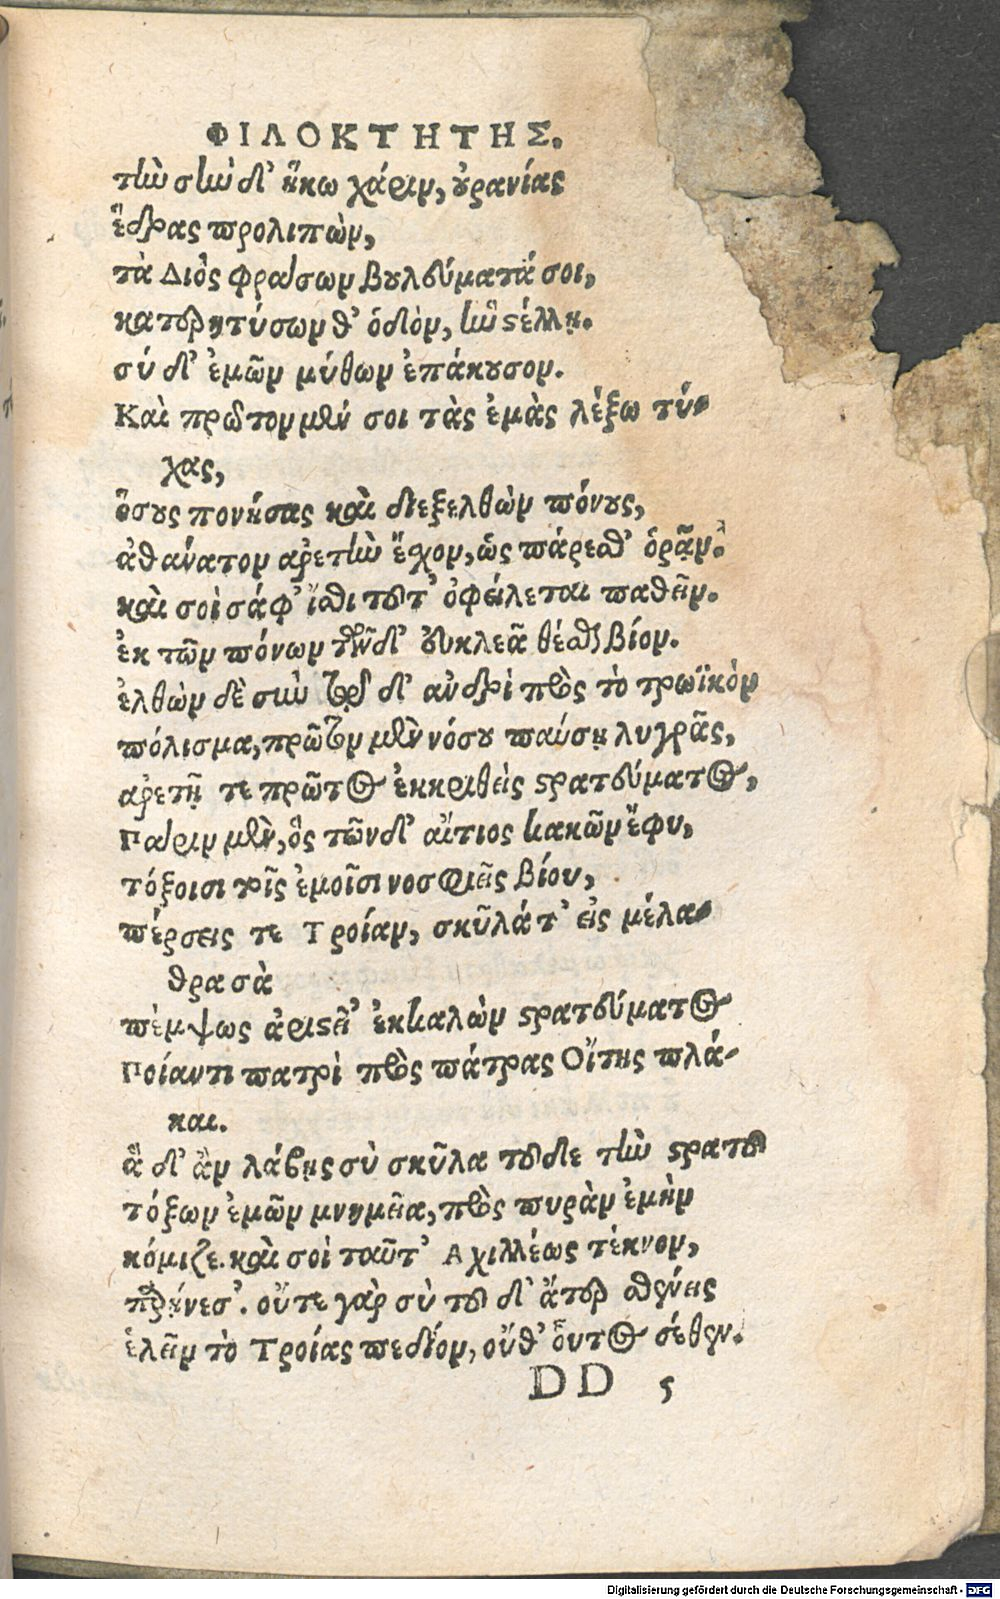 ΦΙΛΟΚΤΗΤΗΣ.
τὴν σὴν δ' ἥκω χάριν, οὐρανίας
ἕδρας προλιπὼν,
τὰ Διὸς φράσων βουλεύματά σοι,
κατερητύσων θ' ὁδὸν, ἣν στέλλῃ.
σύ δ' ἐμῶν μύθων ἐπάκουσον.
Καὶ πρῶτον μέν σοι τὰς ἐμὰς λέξω τύ-
χας,
ὅσους πονήσας καὶ διεξελθὼν πόνους,
ἀθάνατον ἀρετὴν ἔχον, ὡς πάρεσθ' ὁρᾷν.
καὶ σοὶ σάφ' ἴσθι τοῦτ' ὀφείλεται παθεῖν.
ἐκ τῶν πόνων τῶνδ' εὐκλεᾶ θέσθαι βίον.
ἐλθὼν δὲ σὺν τῷδ' ἀνδρὶ πρὸς τὸ τρωϊκὸν
πόλισμα, πρῶτον μὲν νόσου παύσῃ λυγρᾶς,
ἀρετῇ τε πρῶτος ἐκκριθεὶς στρατεύματος,
Πάριν μὲν, ὃς τῶνδ' αἴτιος κακῶν ἔφυ,
τόξοισι τοῖς ἐμοῖσι νοσφιεῖς βίου,
πέρσεις τε Τροίαν, σκῦλά τ' εἰς μέλα-
θρα σὰ
πέμψως ἀριστεῖ' ἐκκαλὼν στρατεύματος
Ποίαντι πατρὶ πρὸς πάτρας Οἴτης πλά-
και.
ἃ δ' ἂν λάβῃς σὺ σκῦλα τοῦδε τὴν στρατοῦ
τόξων ἐμῶν μνημεῖα, πρὸς πυρὰν ἐμὴν
κόμιζε. καὶ σοὶ ταῦτ' Ἀχιλλέως τέκνον,
παρῄνεσ'. οὔτε γὰρ σὺ τοῦδ' ἄτερ σθένεις
ἑλεῖν τὸ Τροίας πεδίον, οὔθ' οὗτος σέθεν.
DD 5
Digitalisierung gefördert durch die Deutsche Forschungsgemeinschaft - DFG